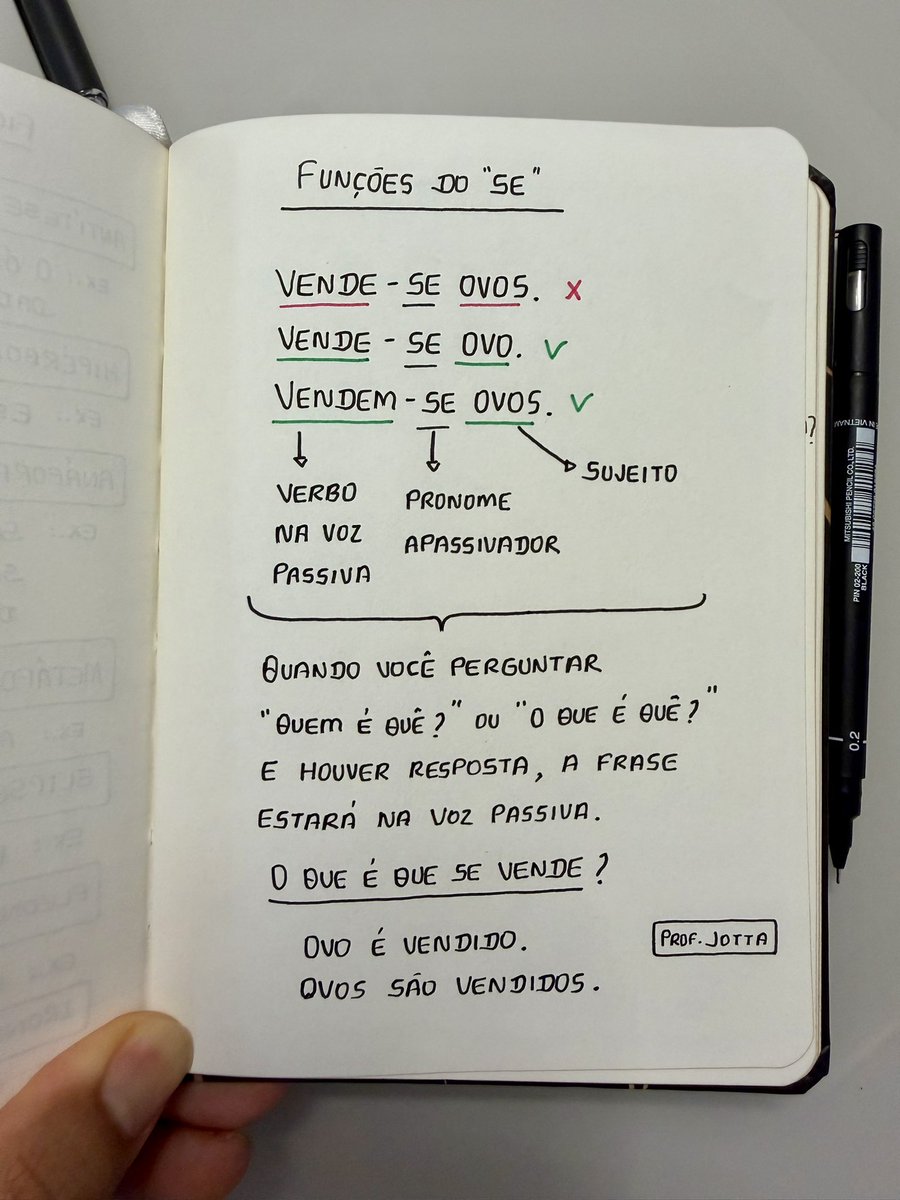 FUNÇÕES DO "SE"
VENDE-SE OVOS. X
VENDE-SE OVO. ✓
VENDEM-SE OVOS. ✓
SUJEITO
VERBO
NA VOZ
PASSIVA
PRONOME
APASSIVADOR
QUANDO VOCÊ PERGUNTAR
"QUEM É QUÊ?" OU "O QUE É QUÊ?"
E HOUVER RESPOSTA, A FRASE
ESTARÁ NA VOZ PASSIVA.
O QUE É QUE SE VENDE?
OVO É VENDIDO.
OVOS SÃO VENDIDOS.
PROF. JOTTA
MITSUBISHI PENCIL CO., LTD.
IN VIETNAM
PIN 02-200
BLACK
0.2